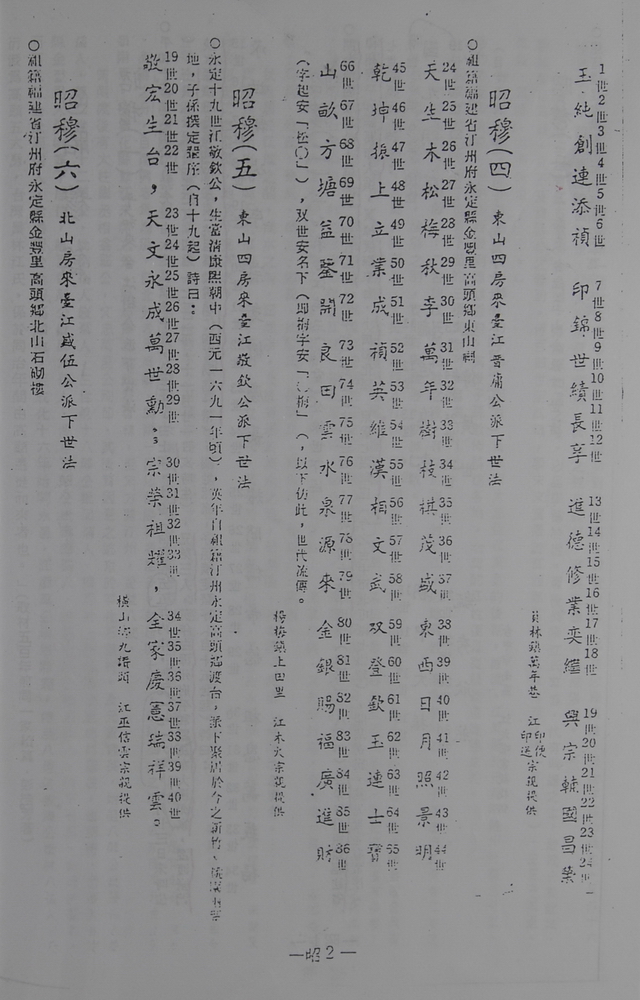 1世2世3世4世5世6世 7世8世9世10世11世12世 13世14世15世16世17世18世 19世20世21世22世23世24世
玉純創連添禎 印錦世績長享 進德修業奕繼 興宗輔國昌業
員林鎮萬年巷 江 印便 印送 宗親提供
昭穆(四) 東山四房來臺江晋甫公派下世法
○祖籍福建省汀州府永定縣金豐里高頭鄉東山
24世25世26世27世28世29世30世31世32世33世34世35世36世37世38世39世40世41世42世43世44世
天生木松梅秋李萬年樹枝棋茂盛東西日月照景明
45世46世47世48世49世50世51世52世53世54世55世56世57世58世59世60世61世62世63世64世65世
乾坤振上立業成禎英維漢相文武双登欽玉連士寶
66世67世68世69世70世71世72世73世74世75世76世77世78世79世80世81世82世83世84世85世86世
山畝方塘益鑒開良田雲水泉源來金銀賜福廣進財
(字起安「松○」),双世安名下(,以下仿此,世代流傳。
楊梅鎮上田里 江木火宗親提供
昭穆(五) 東山四房來臺江敬欽公派下世法
○永定十九世江敬欽公,生當清康熙朝中(西元一六九一年頃),英年自祖籍汀州永定高頭鄉渡台,派下聚居於今之新竹、
地,子係撰定張序(自十九起)詩曰:
19世20世21世22世 23世24世25世26世27世28世29世 30世31世32世33世 34世35世36世37世38世39世40世
敬宏生台,天文永成萬世勳。宗榮祖耀,全家慶憲瑞祥雲。
橫山 九讚頭 江巫信雲宗親提供
昭穆(六) 北山房來臺江盛伍公派下世法
○祖籍福建省汀州府永定縣金豐里高頭鄉北山石砌樓
—昭2—